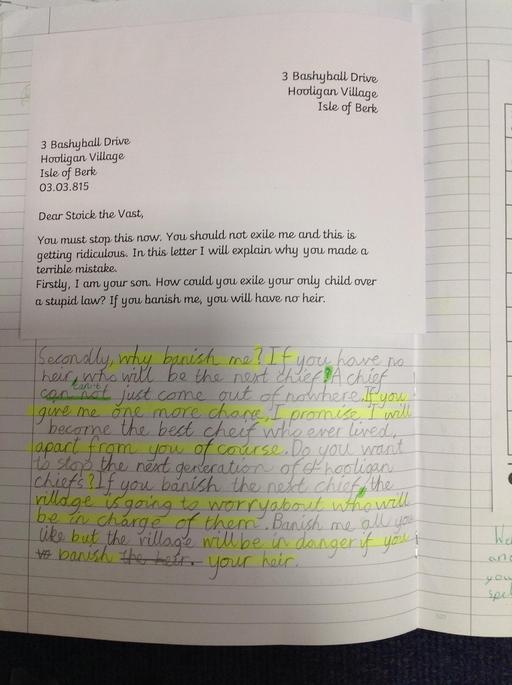 3 Bashyball Drive
Hooligan Village
Isle of Berk
3 Bashyball Drive
Hooligan Village
Isle of Berk
03.03.815
Dear Stoick the Vast,
You must stop this now. You should not exile me and this is
getting ridiculous. In this letter I will explain why you made a
terrible mistake.
Firstly, I am your son. How could you exile your only child over
a stupid law? If you banish me, you will have no heir.
Secondly, why banish me? If you have no
heir, who will be the next chief? A chief
can't
can not just come out of nowhere. If you
give me one more chane, I promise I will
become the best cheif who ever lived,
apart from you of course. Do you want
to stop the next generation of hooligan
chiefs? If you banish the next chief, the
village is going to worry about who will
be in charge of them. Banish me all you
like but the village will be in danger if you
banish the heir. your heir.